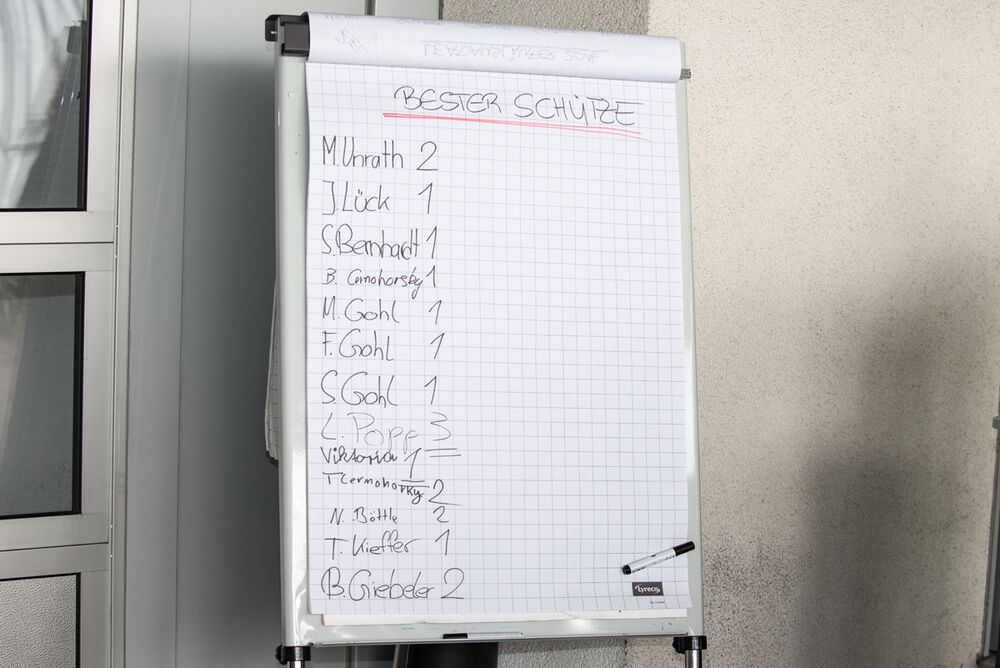 BESTER SCHÜTZE
M. Unrath 2
J. Lück 1
S. Bernhardt 1
B. Cernohorsky 1
M. Gohl 1
F. Gohl 1
S. Gohl 1
L. Popp 3
Viktoria 1
T Cernohorky 2
N. Böttle 2
T. Kieffer 1
B. Giebeler 2
Lyreco